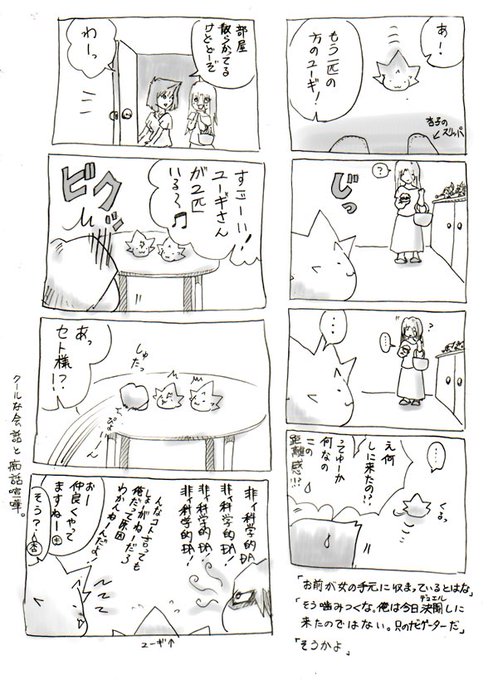 あ!
もう一匹の
方のユーギ!
杏子の
スリッパ
?
じっ
…
?
…
え、何
しに来たの??
ってゆーか
何なの
この
距離感!!?
くるっ
「お前が女の手元に収まっているとはな」
「そう噛みつくな。俺は今日決闘しに
デュエル
来たのではない。只のナビゲーターだ」
「そうかよ」
部屋
散らかてる
けどどーぞ
わーっ
すごーい!
ユーギさん
が2匹
いる〜♪
ビクッ
?
あっ
セト様!?
しゅたっ
ぴょーん
非ィ科学的DA!
非ィ科学的DA!
非ィ科学的DA!
んなコト言っても
しょーがねーだろ
俺だって原因
わかんねーんだよ!
おー
仲良くやて
ますねー
そう?
杏
ユーギ↑
クールな会話と痴話喧嘩。